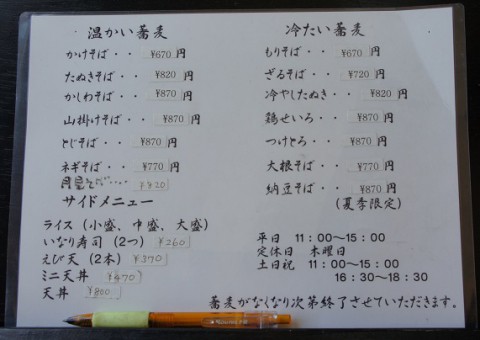 温かい蕎麦
かけそば・・ ¥670円
たぬきそば・・ ¥820円
かしわそば・・ ¥870円
山掛けそば・・ ¥870円
とじそば・・ ¥870円
ネギそば・・ ¥770円
月見そば・・・・ ¥720
サイドメニュー
ライス (小盛、中盛、大盛)
いなり寿司 (2つ) ¥260
えび天 (2本) ¥370
ミニ天丼 ¥470
天丼 ¥800
冷たい蕎麦
もりそば・・ ¥670円
ざるそば・・ ¥720円
冷やしたぬき・・ ¥820円
鶏せいろ・・ ¥870円
つけとろ・・ ¥870円
大根そば・・ ¥770円
納豆そば・・ ¥870円
(夏季限定)
平日 11:00~15:00
定休日 木曜日
土日祝 11:00~15:00
16:30~18:30
蕎麦がなくなり次第終了させていただきます。